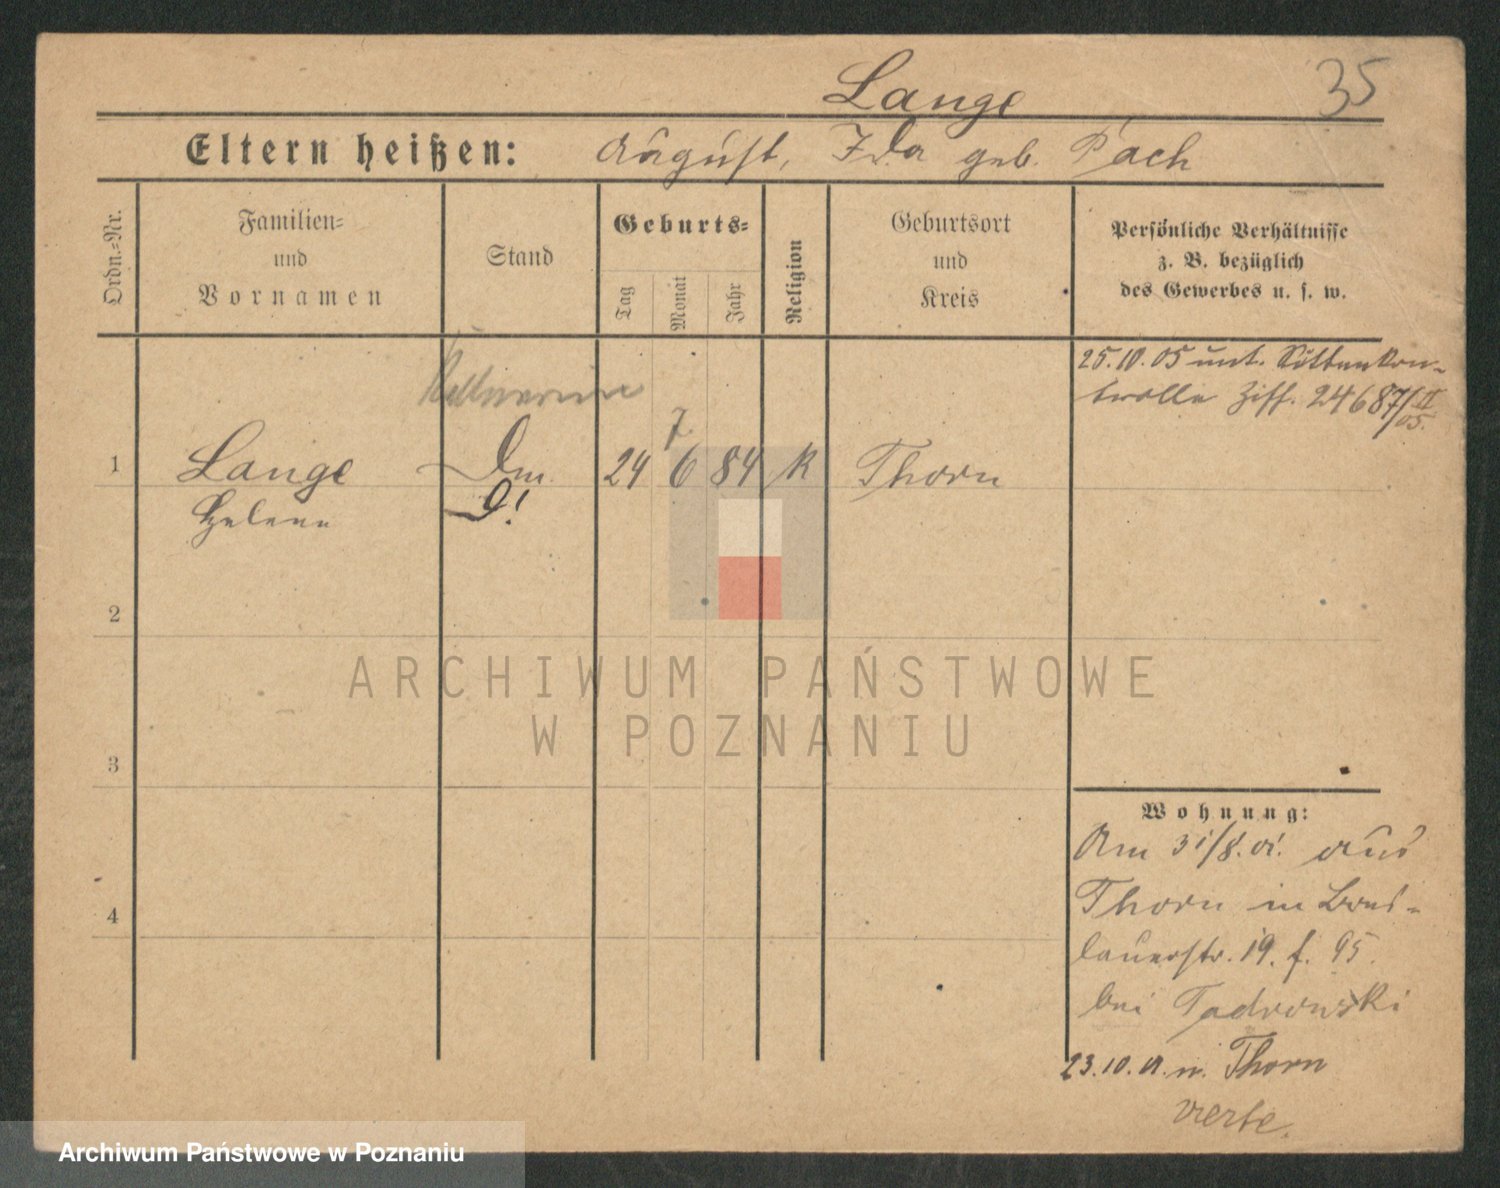 Lange 35
Eltern heißen: August, Ida geb. Pach
Ordn.-Nr.
Familien-
und
Vornamen
Stand
Geburts-
Tag
Monat
Jahr
Religion
Geburtsort
und
Kreis
Persönliche Verhältnisse
z. B. bezüglich
des Gewerbes u. s. w.
25.10.05 unt. Sittenkon-
trolle Ziff. 24687/II 05.
Kellnerin
7
1 Lange 24 6 84 k Thorn
Helene D!
2
3
4
ARCHIWUM PAŃSTWOWE
W POZNANIU
Wohnung:
Am 31/8. 01. aus
Thorn in Bres-
lauerstr. 19. f. 95.
bei
23.10.01. n. Thorn
Archiwum Państwowe w Poznaniu